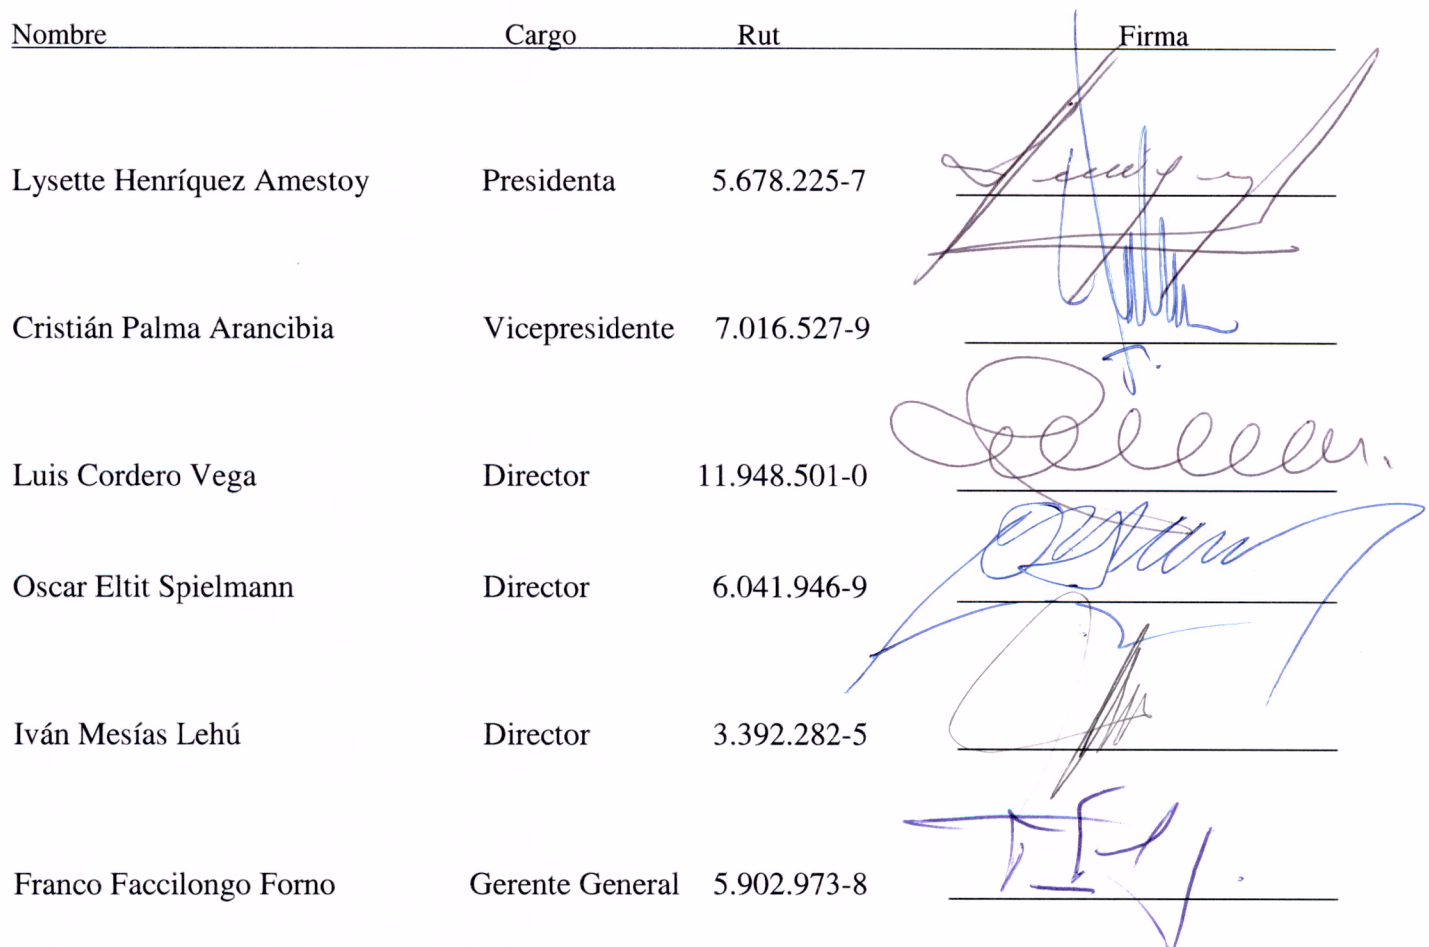 Nombre Cargo Rut Firma
Lysette Henríquez Amestoy Presidenta 5.678.225-7
Cristián Palma Arancibia Vicepresidente 7.016.527-9
Luis Cordero Vega Director 11.948.501-0
Oscar Eltit Spielmann Director 6.041.946-9
Iván Mesías Lehú Director 3.392.282-5
Franco Faccilongo Forno Gerente General 5.902.973-8